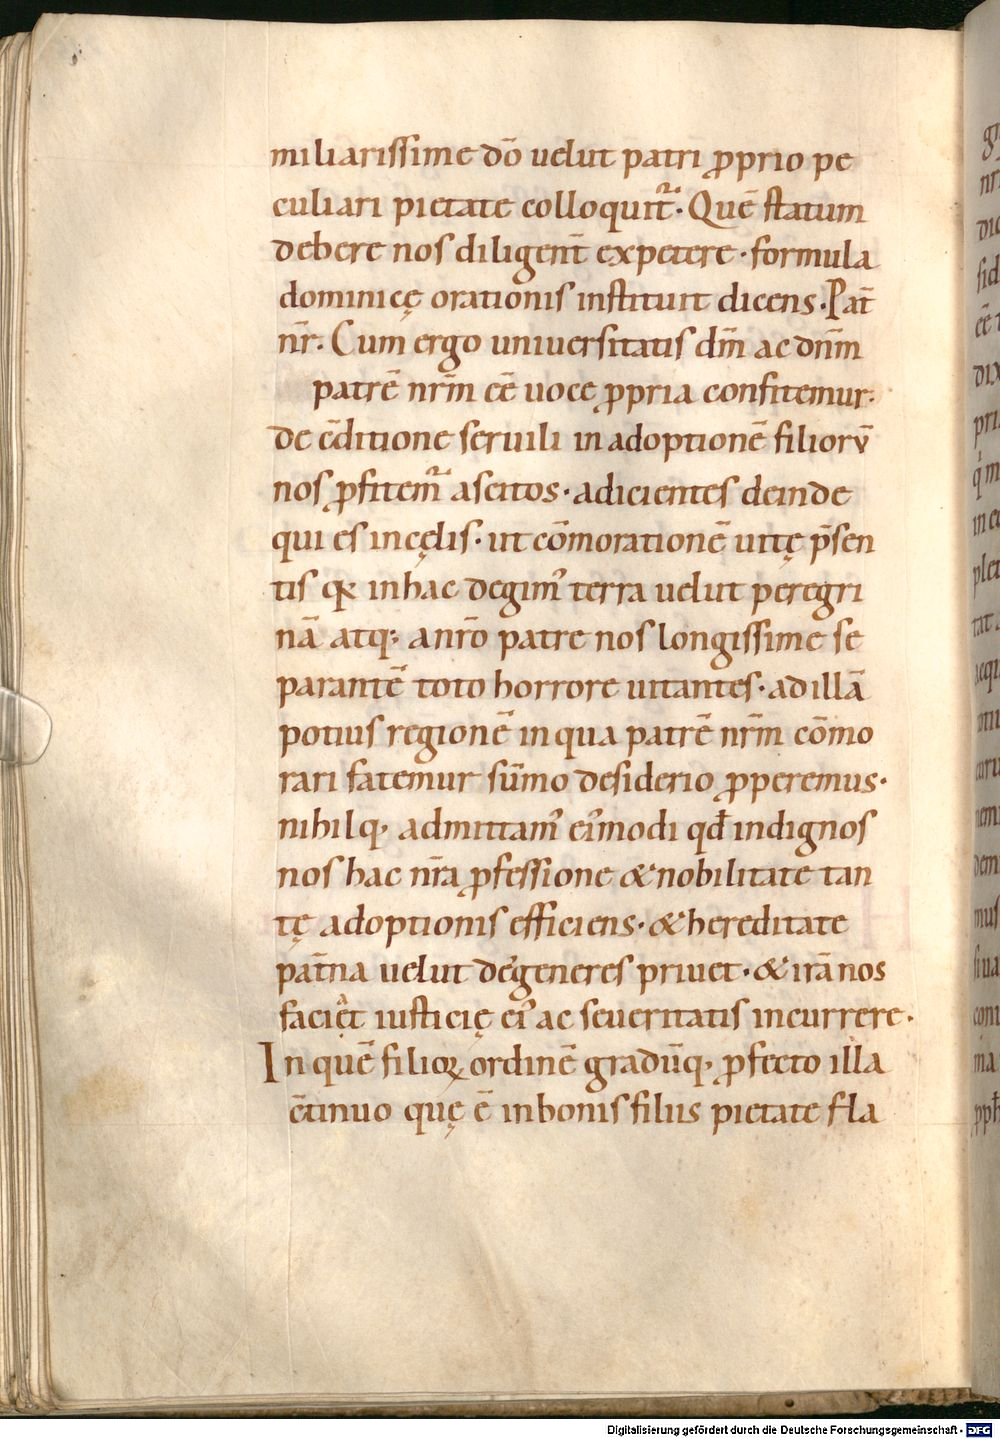 miliarissime dō uelut patri ꝓprio pe
culiari pietate colloquit᷑. Quē statum
debere nos diligent̄ expetere · formula
dominicę orationis instituit dicens · Pat̄
nr̄. Cum ergo uniuersitatis dm̄ ac dnm̄
patrē nrm̄ eē uoce ꝓpria confitemur.
de c̄ditione seruili in adoptionē filiorū
nos ꝓfitem᷑ ascitos · adicientes deinde
qui es in cęlis · ut cōmorationē uitę p̄sen
tis qꝛ in hac degim᾿ terra uelut peregri
nā atq; a nr̄o patre nos longissime se
parantē toto horrore uitantes · ad illā
potius regionē in qua patrē nrm̄ cōmo
rari fatemur sūmo desiderio ꝓperemus ·
nihilq; admittam᾿ ei᾿modi qđ indignos
nos hac nr̄a ꝓfessione & nobilitate tan
tę adoptionis efficiens · & hereditate
pat̄na uelut degeneres priuet · & irā nos
faciat iusticię ei᾿ ac seueritatis incurrere ·
In quē filioꝝ ordinē gradūq; ꝓfecto illa
c̄tinuo quę ē in bonis filiis pietate fla
Digitalisierung gefördert durch die Deutsche Forschungsgemeinschaft - DFG